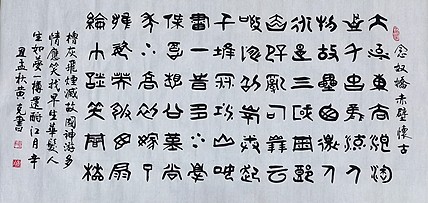 念奴嬌赤壁懷古
大江東去浪淘
盡千古風流人
物故壘西邊人
道是三國周郎
赤壁亂石穿空
驚濤拍岸捲起
千堆雪江山如
畫一時多少豪
傑遙想公瑾當
年小喬初嫁了
雄姿英發羽扇
綸巾談笑間檣
櫓灰飛煙滅故國神游多
情應笑我早生華髮人
生如夢一樽還酹江月辛
丑孟秋黃克書